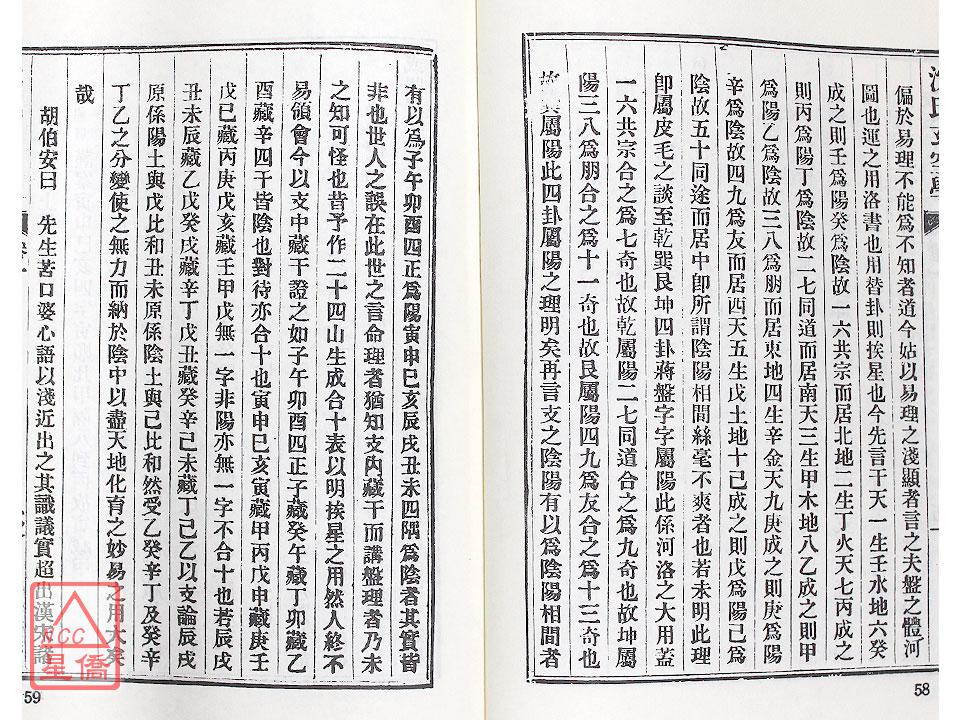 沈氏玄空學
偏於易理不能爲不知者道今姑以易理之淺顯者言之夫盤之體河
圖也運之用洛書也用替卦則挨星也今先言干天一生壬水地六癸
成之則壬爲陽癸爲陰故一六共宗而居北地二生丁火天七丙成之
則丙爲陽丁爲陰故二七同道而居南天三生甲木地八乙成之則甲
爲陽乙爲陰故三八爲朋而居東地四生辛金天九庚成之則庚爲陽
辛爲陰故四九爲友而居西天五生戊土地十己成之則戊爲陽己爲
陰故五十同途而居中卽所謂陰陽相間絲毫不爽者也若未明此理
卽屬皮毛之談至乾巽艮坤四卦蔣盤字字屬陽此係河洛之大用蓋
一六共宗合之爲七奇也故乾屬陽二七同道合之爲九奇也故坤屬
陽三八爲朋合之爲十一奇也故艮屬陽四九爲友合之爲十三奇也
故巽屬陽此四卦屬陽之理明矣再言支之陰陽有以爲陰陽相間者
58
有以爲子午卯酉四正爲陽寅申巳亥辰戌丑未四隅爲陰者其實皆
非也世人之誤在此世之言命理者猶知支內藏干而講盤理者乃未
之知可怪也昔予作二十四山生成合十表以明挨星之用然人終不
易領會今以支中藏干證之如子午卯酉四正子藏癸午藏丁卯藏乙
酉藏辛四干皆陰也對待亦合十也寅申巳亥寅藏甲丙戊申藏庚壬
戊巳藏丙庚戊亥藏壬甲戊無一字非陽亦無一字不合十也若辰戌
丑未辰藏乙戊癸戌藏辛丁戊丑藏癸辛己未藏丁己乙以支論辰戌
原係陽土與戊比和丑未原係陰土與己比和然受乙癸辛丁及癸辛
丁乙之分變使之無力而納於陰中以盡天地化育之妙易之用大矣
哉
胡伯安曰 先生苦口婆心語以淺近出之其識議實超出漢宋諸
59
NCC
星僑